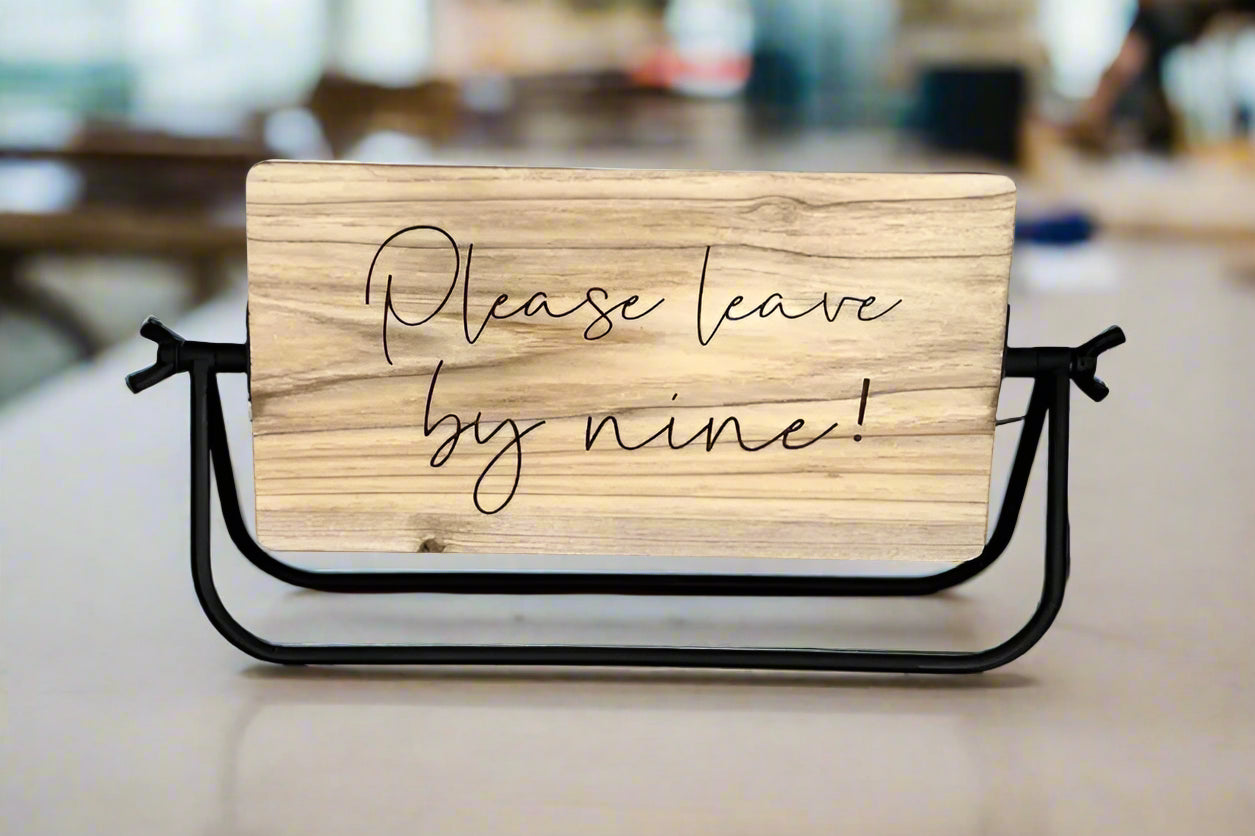 Please leave
by nine!